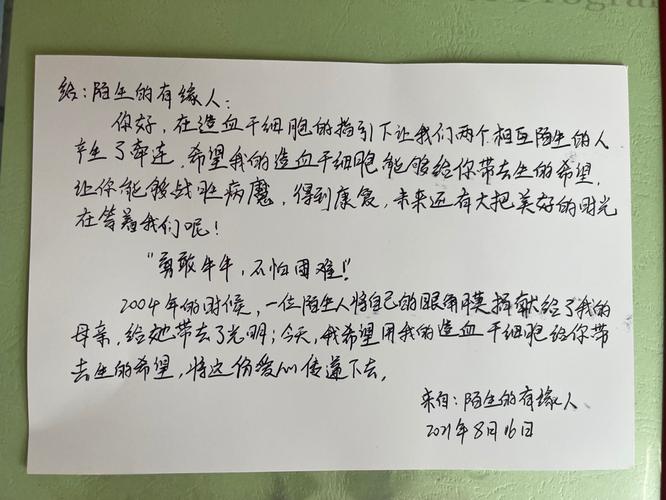 Progra
给:陌生的有缘人:
你好,在造血干细胞的指引下让我们两个相互陌生的人
产生了牵连,希望我的造血干细胞能够给你带去生的希望,
让你能够战胜病魔,得到康复,未来还有大把美好的时光
在等着我们呢!
"勇敢牛牛,不怕困难!"
2004年的时候,一位陌生人将自己的眼角膜捐献给了我的
母亲,给她带去了光明;今天,我希望用我的造血干细胞给你带
去生的希望,将这份爱心传递下去。
来自:陌生的有缘人
2021年8月16日